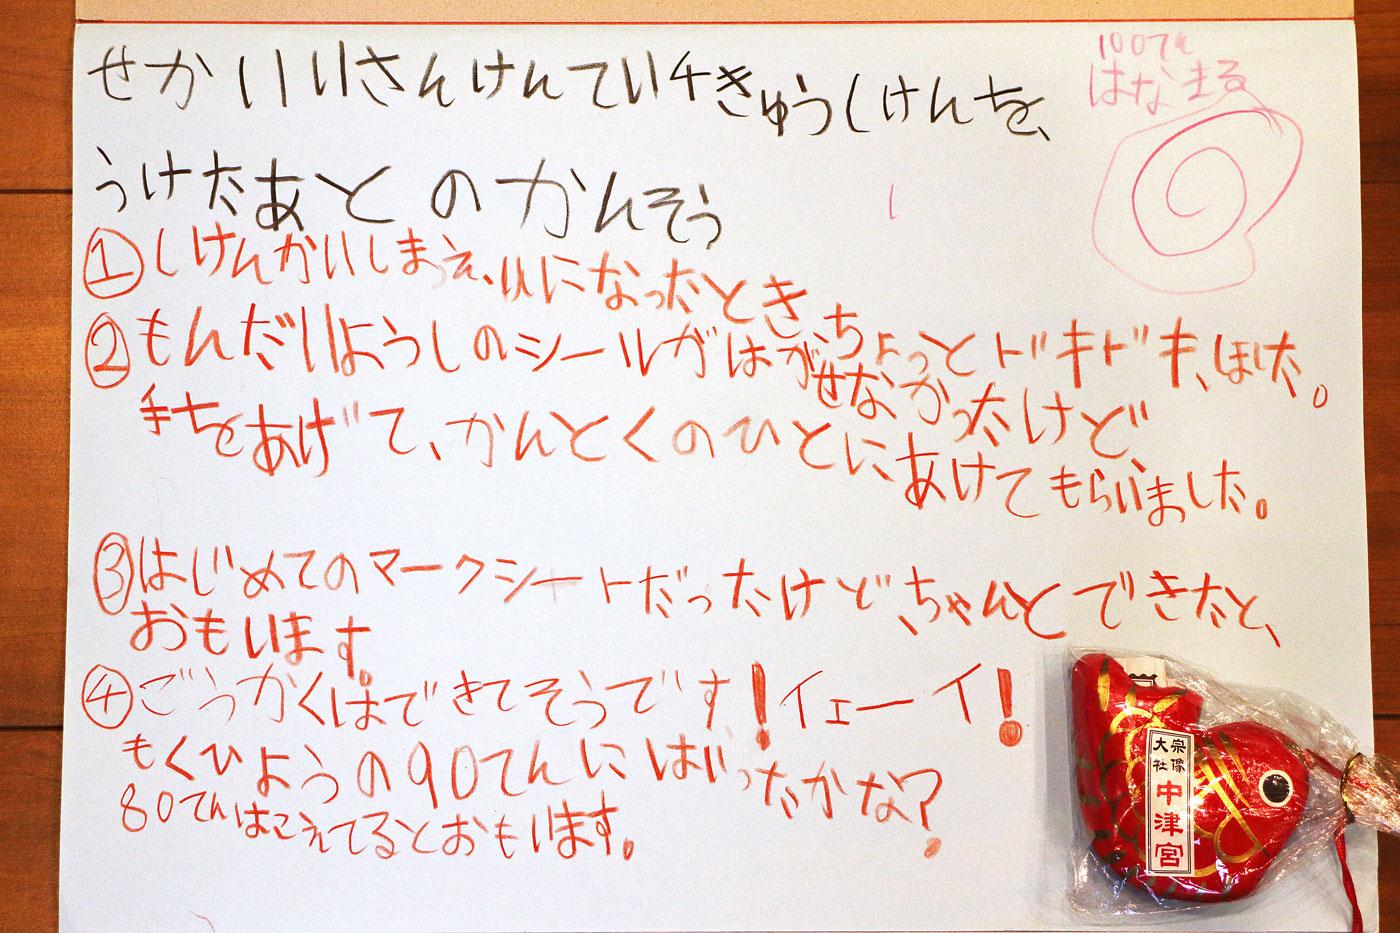 せかいいさんけんてい4きゅうしけんを、
うけたあとのかんそう
100てん
はなまる
①しけんかいしまえ、になったとき、ちょっとドキドキ、
②もんだいようしのシールがはがせなかったけど、
手をあげて、かんとくのひとに、あけてもらいました。
③はじめてのマークシートだったけど、ちゃんとできたと、
おもいます。
④ごうかくはできてそうです!イェーイ!
もくひょうの90てんにはいったかな?
80てんはこえてるとおもいます。
宗像大社
中津宮